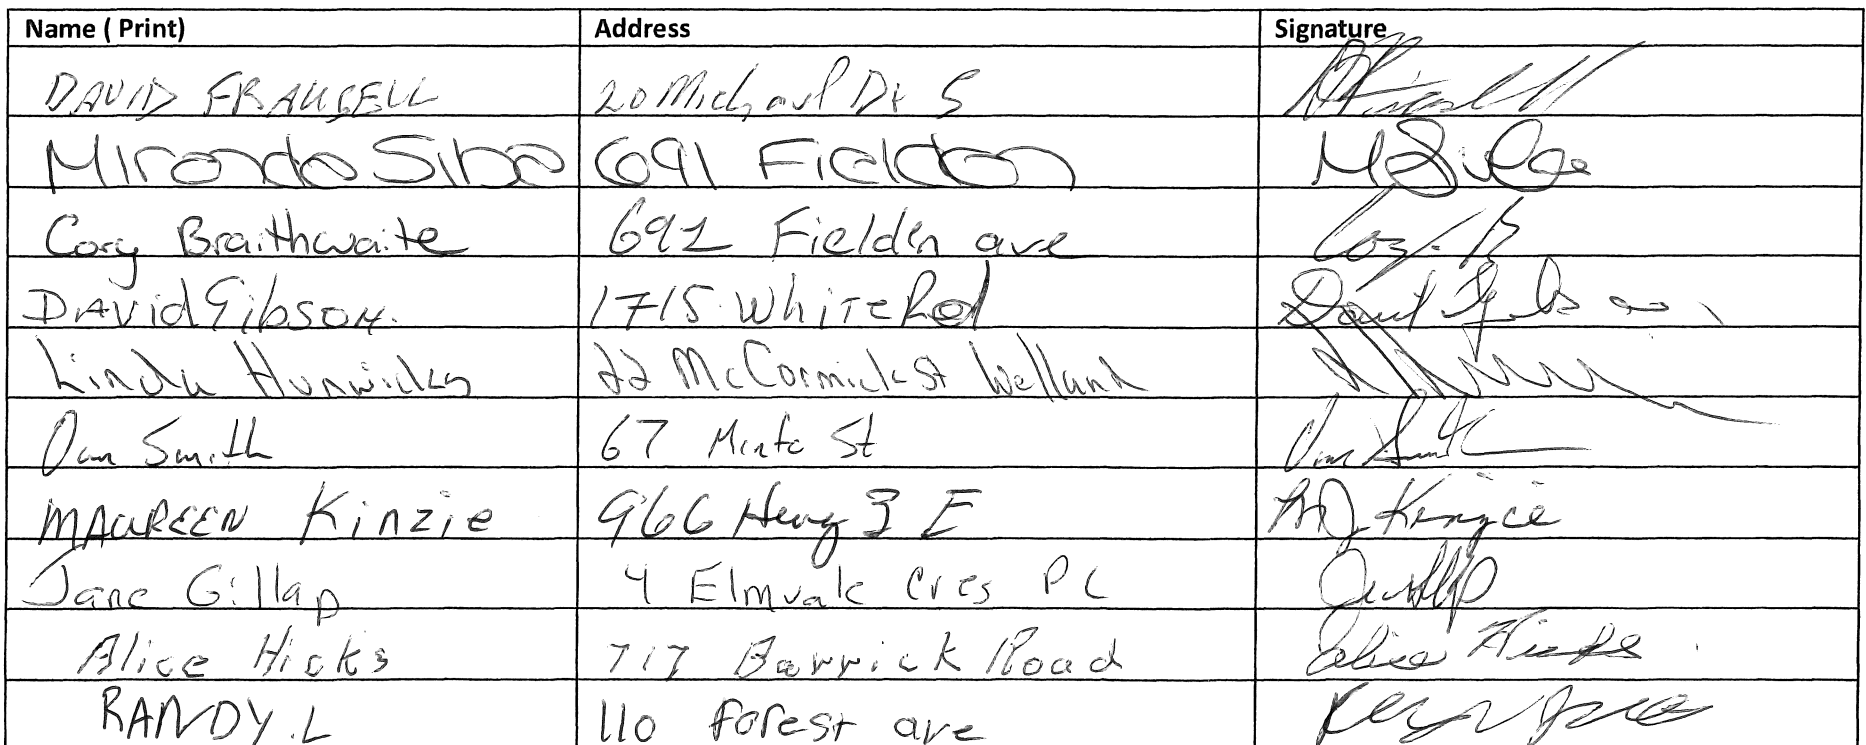 Name ( Print) Address Signature
DAVID 20 Michael Dr S
Miranda Siba 691 Fielden
Cory Braithwaite 691 Fielden ave Cory B
David Gibson. 1715 White Rd David Gibson
Linda 22 McCormick St Welland
Dan Smith 67 Minto St Dan Smith
MAUREEN Kinzie 966 Hwy 3 E M J Kinzie
Jane Gillap 4 Elmvale Cres PC
Alice Hicks 717 Barrick Road Alice Hicks
RANDY.L 110 forest ave